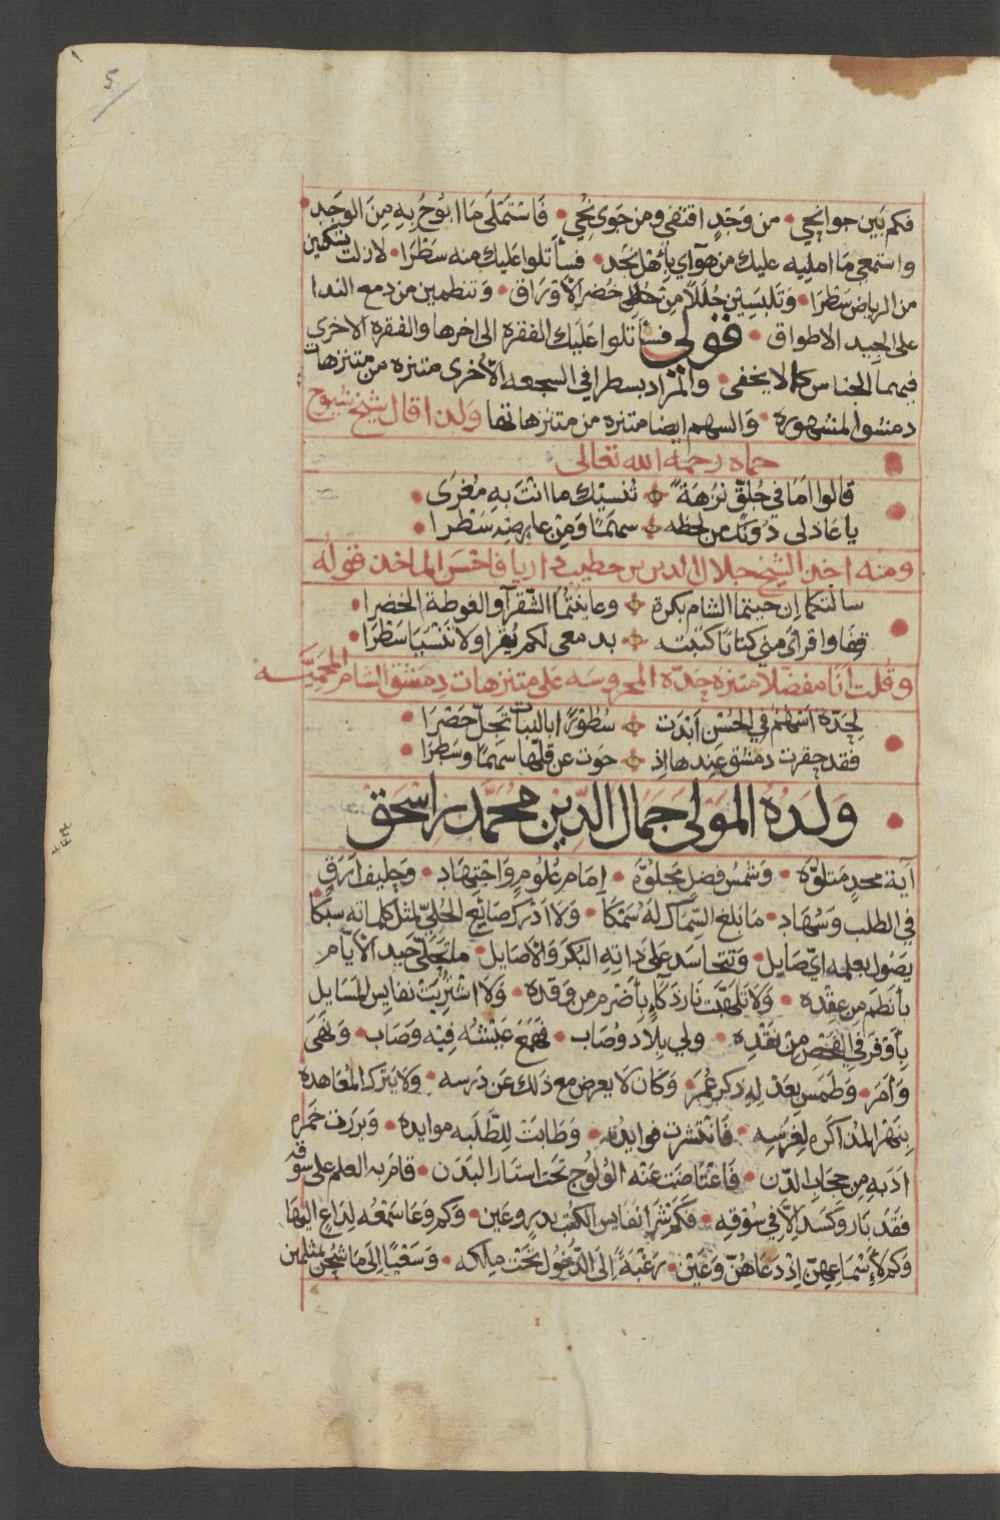 5
فكم بَين جوانحي • من وَجَدٍ اقتفى ومن جَوى نُحِي • فَاسْتَمْلَى مَا ابُوحُ بِهِ مِنَ الوَجَد •
واستمعي مَا امليه عليك من هوَاي يا هْل نَجَد • فسأتلوا عَليك منه سَطْرَا • لازلت تسكبن
من الرياض سَطْرَا • وَتَلبَسِين حُلَلاً مِنْ حُلل خُضر الاَوْرَاق • وَتنظمين من دمع الندا
على الجيد الاطواق • قولي فسأتلوا عَلَيك الفقرة الى اخرها والفقرة الاخرى
فيهما الجناس كما لا يخفى • والمراد بسطرا في السجعه الاخرى متنزه من متنزهات
دمشق المشهورة • وَالسهم ايضا متنزه من متنزهاتها ولذا قال شيخ شيوخ
حماه رحمه الله تعالى
قالوا امَا في جُلَّق نزهَة تُنسيْك ما انتَ بهِ مُغرَى •
يا عَاذلى دُونَك من لحظه سهمًا وَمِنْ عارضِه سَطْرا •
ومنه اخذ الشيخ جلال الدين بن خطيب داريا فاحْسَن الماخذ قوله
سالتكما إن جيتما الشام بكرة وعاينتُمَا الشّقرا والغوطة الخضرا •
قِفَا واقرأَى مني كتابًا كتبته بدمعى لكم يُقرا ولا تَنْسَيَا سَطْرَا •
وقلت أنا مفضّلا متنزه جَدّة المحروسَه عَلى متنزهات دِمَشق الشام المحميَّه
لِجَدّة اسْهُمٌ في الحُسْن ابْدَت سُطوْرًا بالنبات تجلّ حَصْرَا •
فقد حقرت دمشق عَندها إذ حوت عن قلّها سَهمًا وسَطرًا •
وَلَدُهُ المَوْلَى جَمَال الدِّيْن محمَّد بن اسْحَق
آيَة مجدٍ مَتلوَّه • وَشمْس فضلٍ مجلوَّه • امَام عُلُومٍ وَاجْتِهَاد • وَحِليف أرَقٍ
في الطلب وَسُهَاد • مَا بَلغ السِّمَاك لهُ سَمْكًا • وَلا ادْرَك صَايغ الحُلِيّ لمثل كلماته سبكًا
يَصُول بعلمه ايّ صَايل • وَتتحاسَد عَلى ذاتهِ البُكَر وَالأَصَايل • ما تحَلّى جيد الايّام
بأنظَم من عِقْده • وَلا تلهَّبَت نار ذكَاءٍ بأضْرَم من وَقْدِه • وَلا اشْتُرِيَتْ نفايس المسَايل
بأَوْفَر في الفَحْصِ مِنْ نقْدِه • ولي بلاد وُصَاب • فهَمَعَ عَيْشُه فيْه وَصَاب • وَنَهَى
وَأمَر • وَطمَس بعَدْلِهِ ذكر عُمَر • وَكَان لا يعرض مع ذلك عَن دَرسه • وَلا يترك المعَاهدَة
بنهْر المذاكَره لغَرسِه • فَانْتشَرت فوايدُه • وَطابَتْ لِلطّلبَه موايده • وَبرَزت خَمرَة
ادَبهِ مِن حِجَابِ الدّن • فَاعْتاضَت عَنْه الوُلوُج تَحت استَار البَدَن • قامَ به العلم على سُوقه
فقدْ بَار وَكَسَد إلاَّ في سُوْقِه • فكم نثرَ نفايس الكتب بدرٍ وعَين • وَكم وَعَا سَمْعُه لدَاعٍ اليهَا
وَكم لأَِسْمَاعِهنّ إذْ دعَاهنّ وَعَيْن • رَغْبَةً إلَى الدّخُول تحْت ملكه • وَسَعْيًا إلَى مَا شُحِن بمثلهن